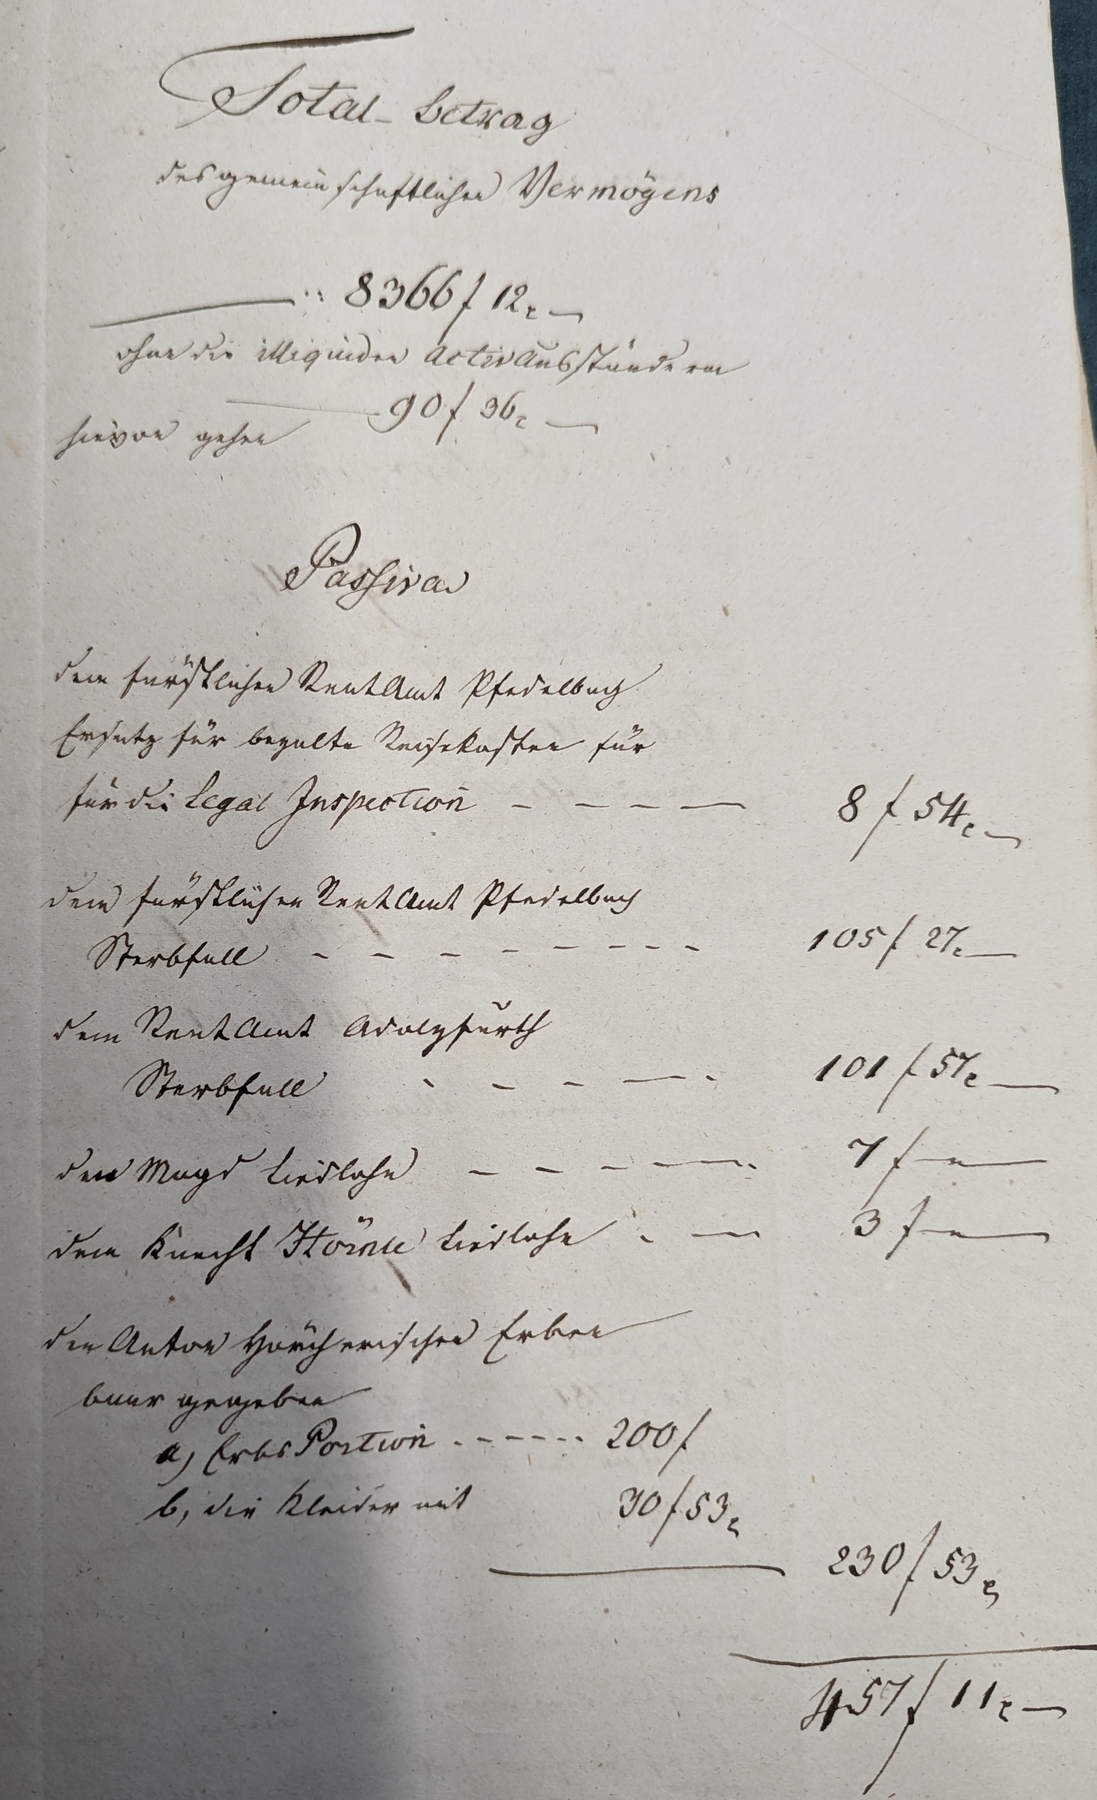 Total-betrag
des gemeinschaftlichen Vermögens
8366 f 12 x
ohne die illiquiden ActivAusstände von
90 f 36 x
hievon gehen
Passiva
dem fürstlichen RentAmt Pfedelbach
Ersatz für bezalte Reisekosten für
für die Legal Inspection - - - - 8 f 54 x
dem fürstlichen RentAmt Pfedelbach
Sterbfall - - - - - - - - 105 f 27 x
dem RentAmt Adolzfurth
Sterbfall - - - - - 101 f 57 x
der Magd Liedlohn - - - - - 7 f -
dem Knecht Liedlohn - - 3 f -
den Anton Horcherischen Erben
baar gegeben
a) Erbs Portion - - - - - - 200 f
b, die Kleider mit 30 f 53 x
230 f 53 x
457 f 11 x